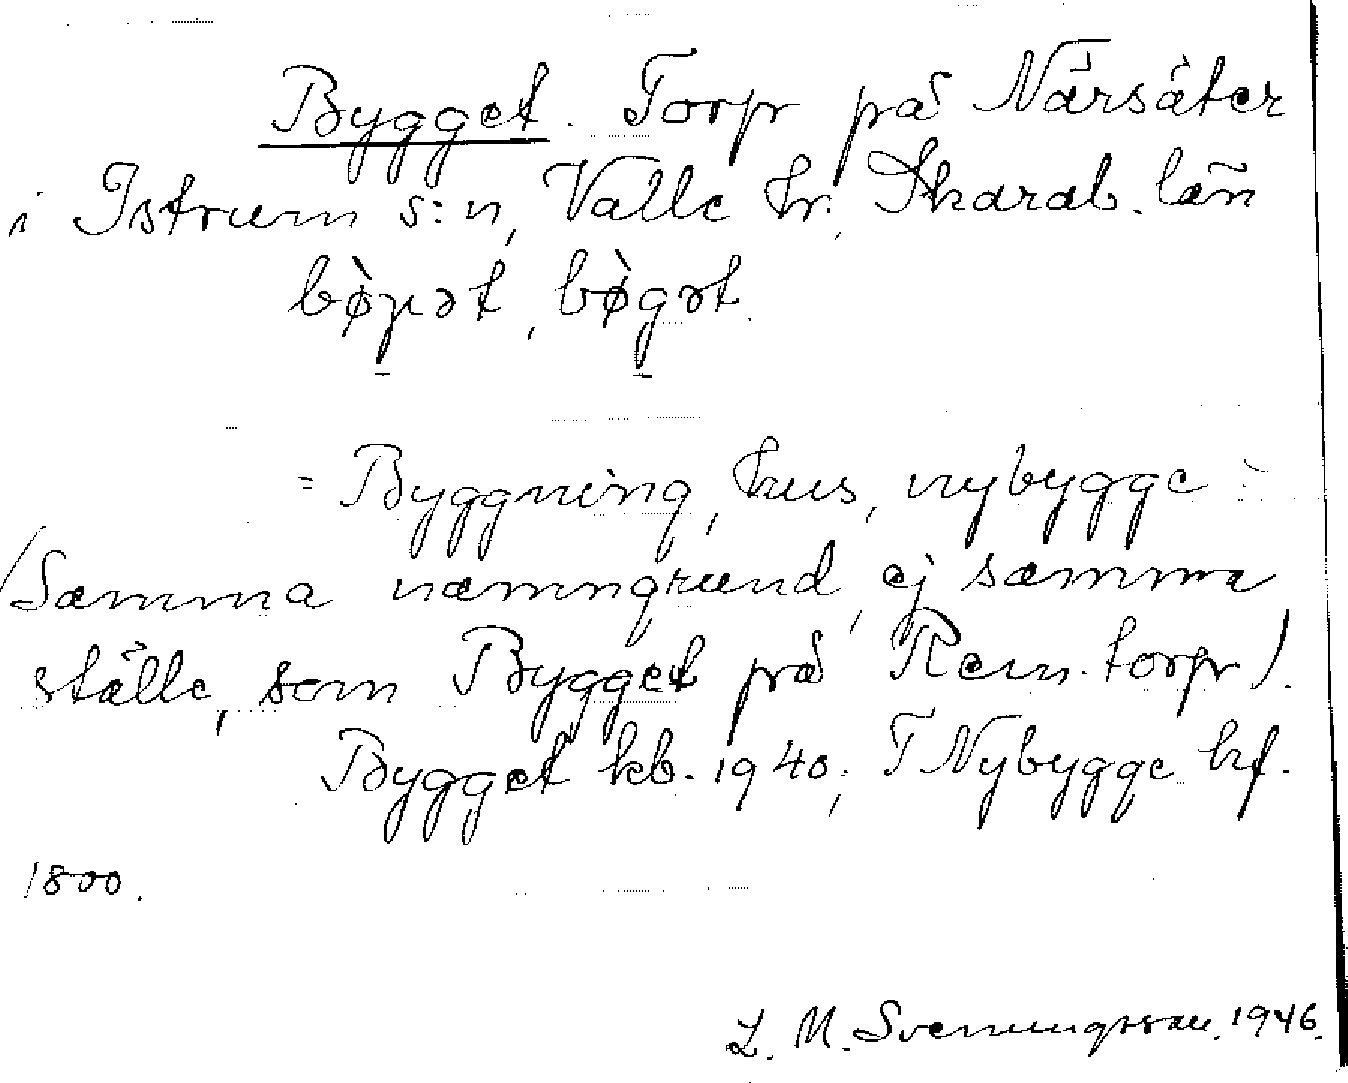 Bygget. Torp på Närsäter
i Istrum s:n, Valle hr, Skarab. län
bø̀gət, bø̀gət.
= Byggning, hus, nybygge
(Samma namngrund, ej samma
ställe, som Bygget på Rem.torp).
Bygget kb. 1940; T Nybygge hf.
1800.
L. M. Svenungsson. 1946.